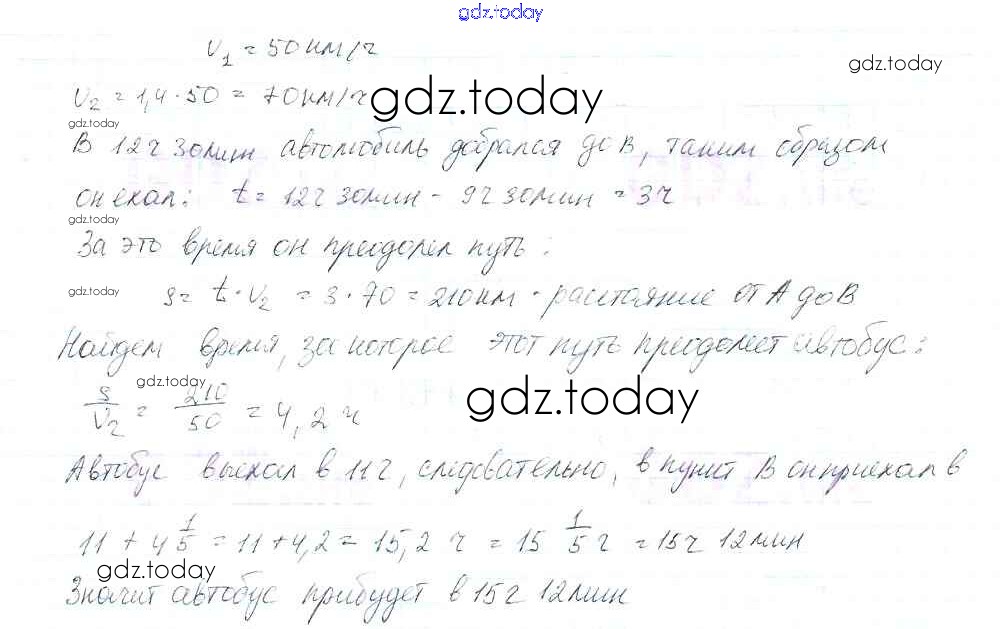 gdz.today
v₁ = 50 км/ч
gdz.today
v₂ = 1,4 · 50 = 70 км/ч gdz.today
gdz.today
В 12ч 30мин автомобиль добрался до В, таким образом
он ехал: t = 12ч 30мин - 9ч 30мин = 3ч
gdz.today
За это время он преодолел путь:
gdz.today s = t · v₂ = 3 · 70 = 210 км - расстояние от А до В
Найдем время, за которое этот путь преодолеет автобус:
gdz.today gdz.today
s/v₂ = 210/50 = 4,2 ч
Автобус выехал в 11ч, следовательно, в пункт В он приехал в
11 + 4 1/5 = 11 + 4,2 = 15,2 ч = 15 1/5 ч = 15ч 12мин
gdz.today
Значит автобус прибудет в 15ч 12мин